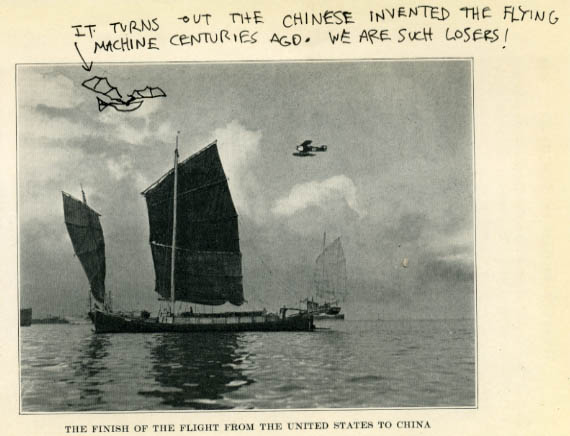 IT TURNS OUT THE CHINESE INVENTED THE FLYING
MACHINE CENTURIES AGO. WE ARE SUCH LOSERS!
THE FINISH OF THE FLIGHT FROM THE UNITED STATES TO CHINA